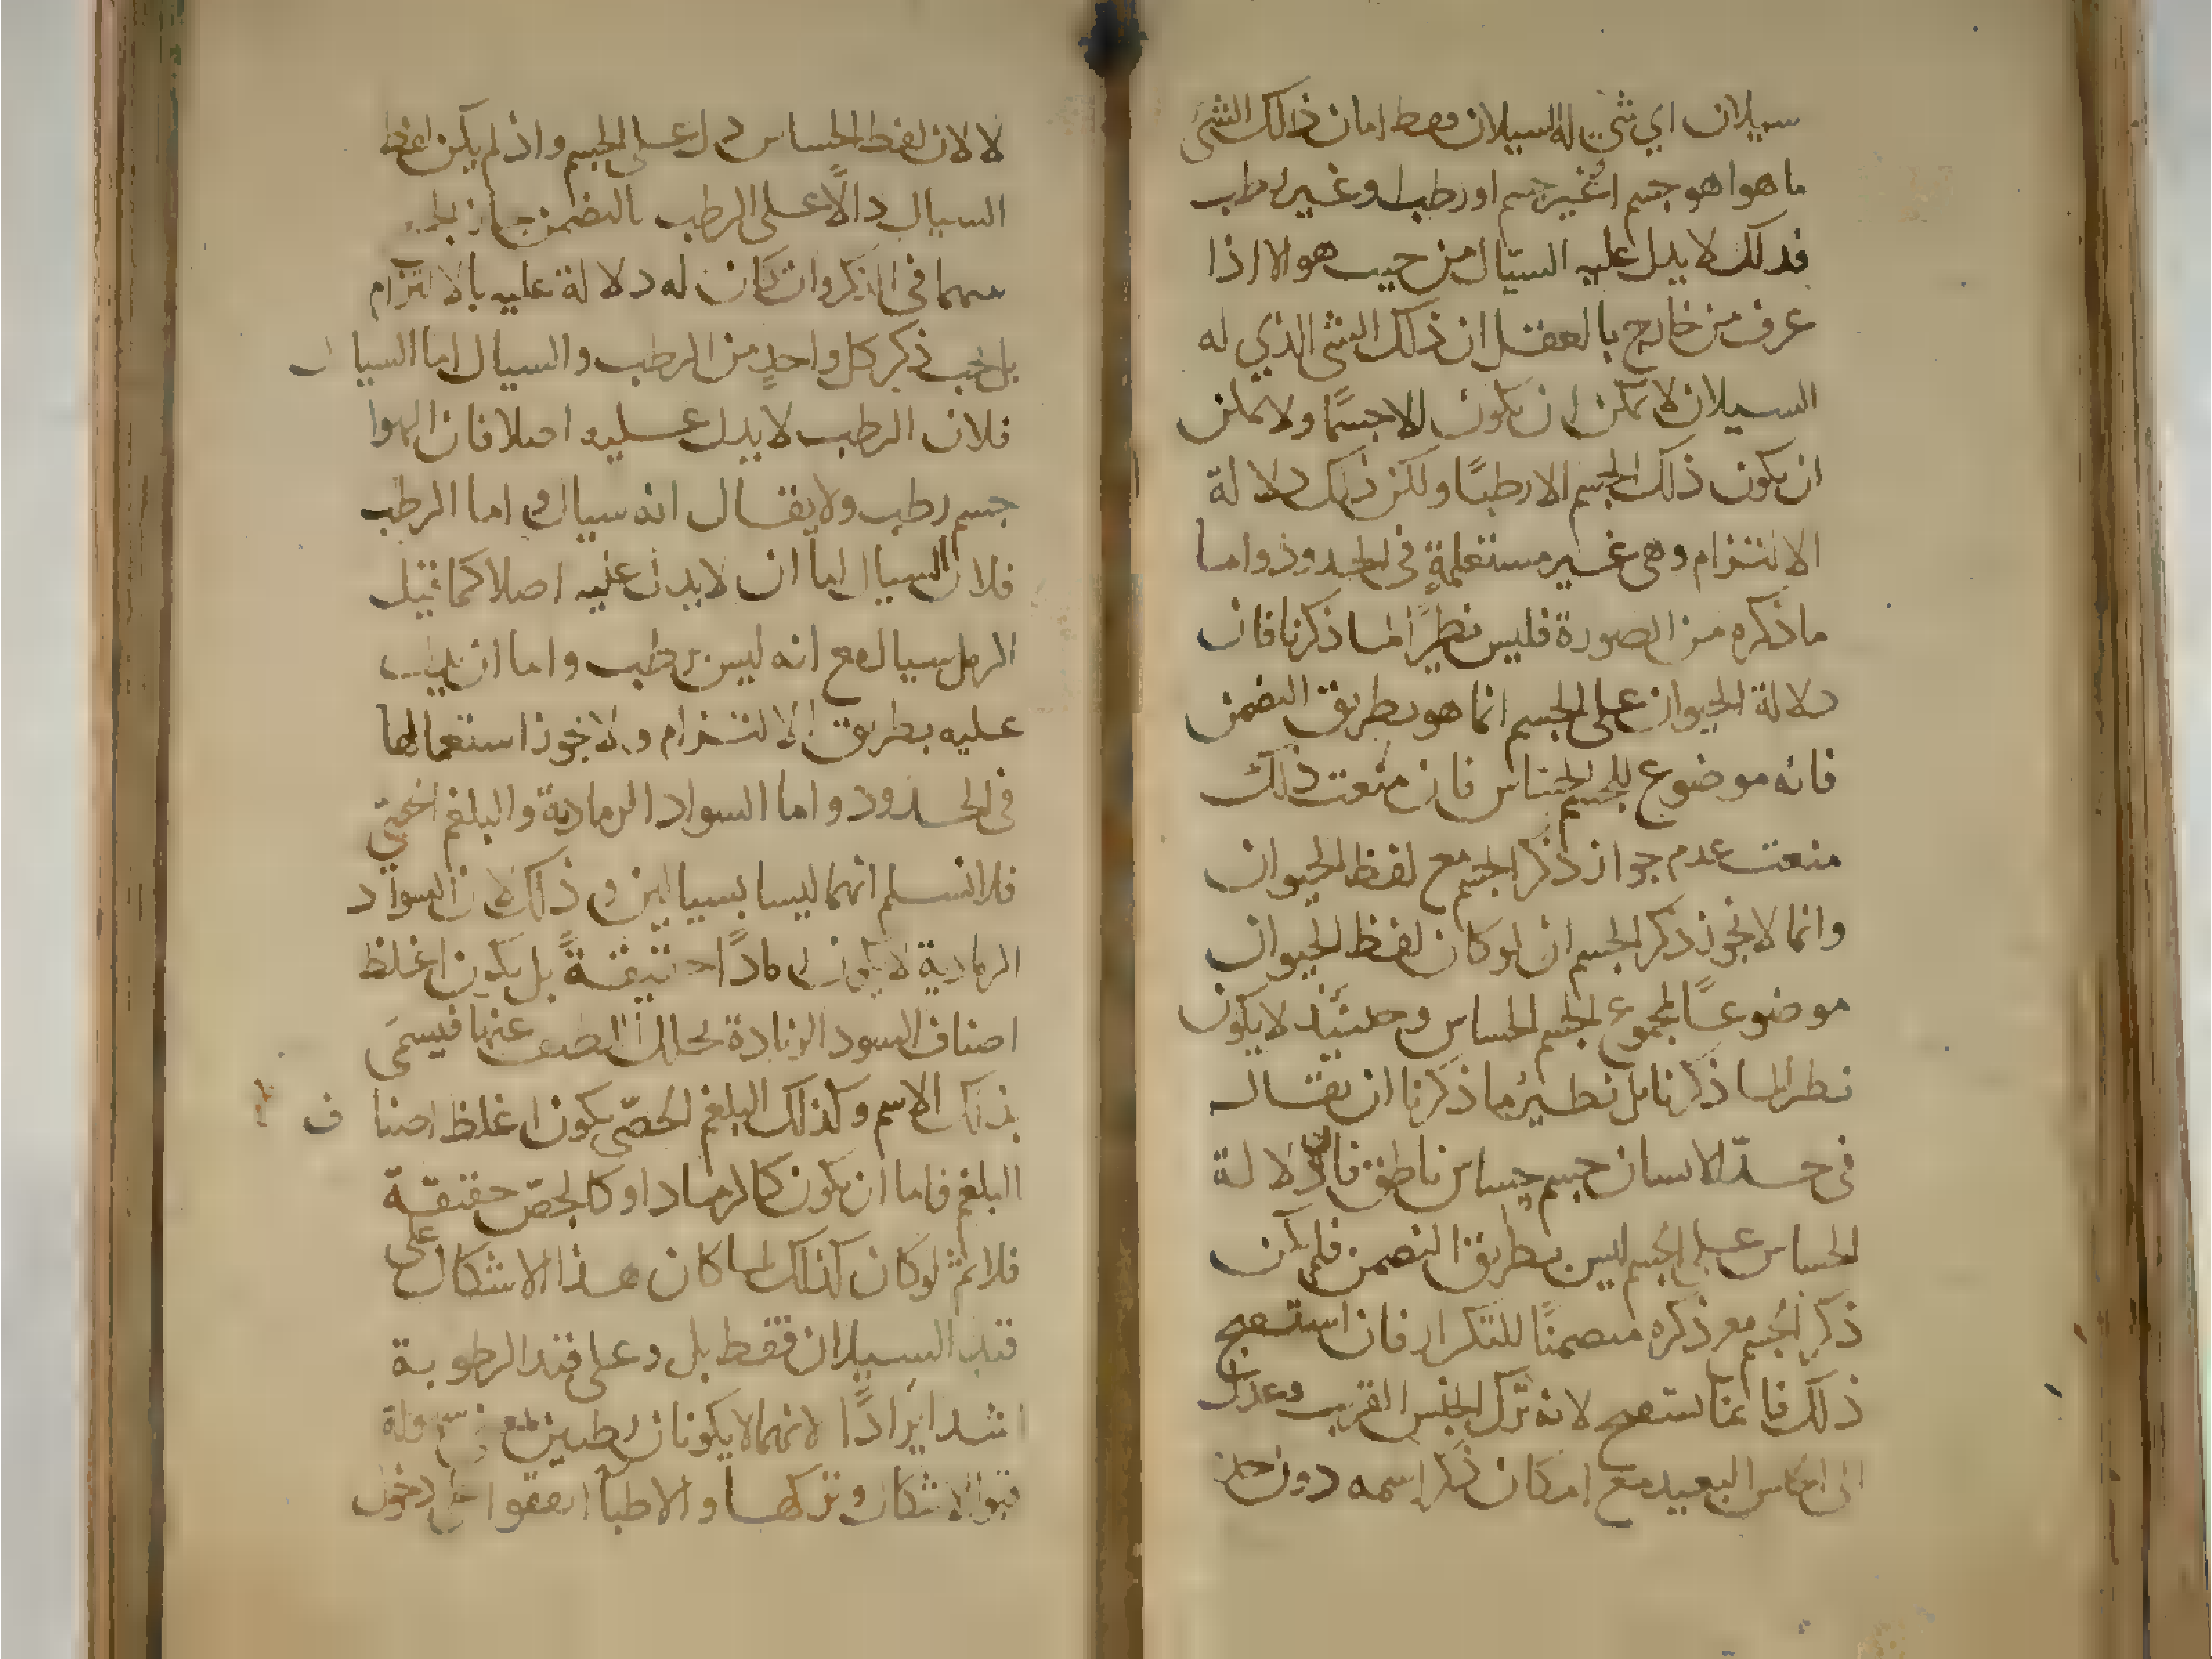 سيلان اي شي له السيلان فقط اما ان ذلك الشي
ما هو اهو جسم او غير جسم او رطب او غير رطب
فذلك لا يدل عليه السيّال من حيث هو الا اذا
عرف من خارج بالعقل ان ذلك الشي الذي له
السيلان لا يمكن ان يكون الا جسمًا ولا يمكن
ان يكون ذلك الجسم الا رطبًا ولكن ذلك دلالة
الالتزام وهي غير مستعلمةٍ في الحدود واما
ما ذكره من الصورة فليس نظيرًا لما ذكرنا فان
دلالة الحيوان على الجسم انما هو بطريق التضمن
فانه موضوع للجسم الحساس فان منعت ذلك
منعت عدم جواز ذكر الجسم مع لفظ الحيوان
وانما لا يجوز ذكر الجسم ان لو كان لفظ الحيوان
موضوعًا لمجموع الجسم الحساس وحينئذ لا يكون
نظيرا لما ذكرنا بل نظير ما ذكرنا ان يقال
في حدّ الانسان جسم حساس ناطق فان دلالة
الحساس على الجسم ليس بطريق التضمن فلم يكن
ذكر الجسم مع ذكره متضمنًا للتكرار فان استقبح
ذلك فانما يستقبح لانه ترك الجنس القريب وعدل
الى البعيد مع امكان ذكر اسمه دون
لا لان لفظ الحساس دل على الجسم واذ لم يكن لفظ
السيال دالًا على الرطب بالتضمن جاز
في الذكر وان كان له دلالة عليه بالالتزام
بل يجب ذكر كل واحدٍ من الرطب والسيال اما السيال
فلان الرطب لا يدل عليه اصلا فان الهوا
جسم رطب ولا يقال انه سيال واما الرطب
فلان السيال اما ان لا يدل عليه اصلا كما قيل
الرمل سيال مع انه ليس برطب واما ان يدل
عليه بطريق الالتزام ولا يجوز استعمالها
في الحدود واما السواد الرمادية والبلغم الجصّي
فلا نسلم انهما ليسا بسيالين وذلك لان السواد
الرمادية لا يكون رمادًا حقيقةً بل يكون اغلظ
اصناف السود الزيادة تحلل اللطيف عنها فيسمى
بذلك الاسم وكذلك البلغم الجصّي يكون اغلظ اصناف
البلغم فاما ان يكون كالرماد او كالجصّ حقيقة
فلا ثم لو كان كذلك لما كان هذا الاشكال على
قيد السيلان فقط بل وعلى قيد الرطوبة
اشد ايرادًا لانهما لا يكونان رطبين مع
الاشكال وتركها والاطبا اتفقوا على دخول